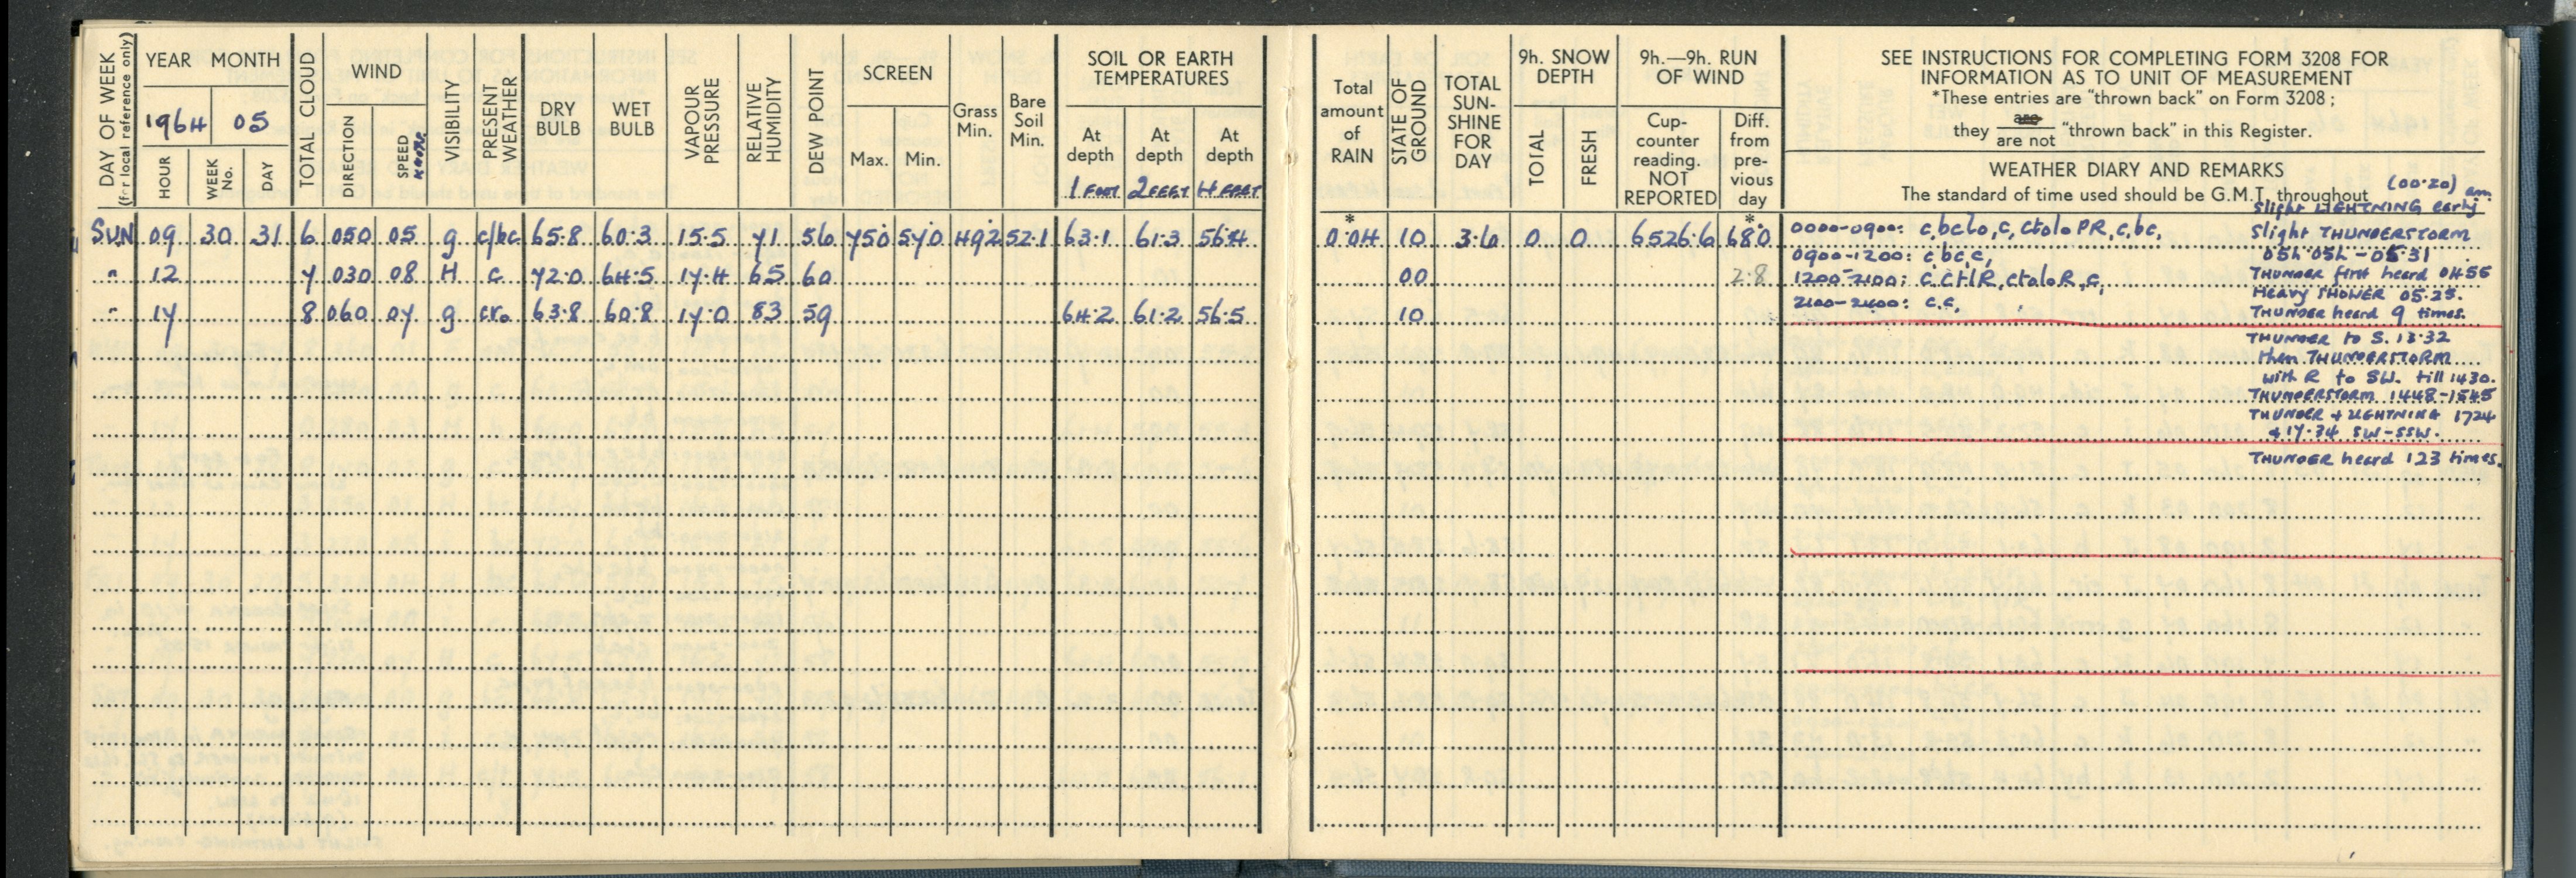 DAY OF WEEK
(for local reference only)
YEAR MONTH
1964 05
HOUR
WEEK No.
DAY
TOTAL CLOUD
WIND
DIRECTION
SPEED
KNOTS
VISIBILITY
PRESENT WEATHER
DRY BULB
WET BULB
VAPOUR PRESSURE
RELATIVE HUMIDITY
DEW POINT
SCREEN
Max. Min.
Grass Min.
Bare Soil Min.
SOIL OR EARTH
TEMPERATURES
At depth 1 FOOT
At depth 2 FEET
At depth 4 FEET
Total amount of RAIN
STATE OF GROUND
TOTAL SUN-SHINE FOR DAY
9h. SNOW DEPTH
TOTAL
FRESH
9h.—9h. RUN OF WIND
Cup-counter reading. NOT REPORTED
Diff. from pre-vious day
SEE INSTRUCTIONS FOR COMPLETING FORM 3208 FOR
INFORMATION AS TO UNIT OF MEASUREMENT
*These entries are "thrown back" on Form 3208;
they are / are not "thrown back" in this Register.
WEATHER DIARY AND REMARKS
The standard of time used should be G.M.T. throughout
SUN 09 30 31 6 050 05 g c/bc 65.8 60.3 15.5 71 56 75.0 57.0 49.2 52.1 63.1 61.3 56.4 * 0.04 10 3.6 0 0 6526.6 * 68.0
" 12 7 030 08 H c 72.0 64.5 17.4 65 60 00 2.8
" 17 8 060 07 g cr₀ 63.8 60.8 17.0 83 59 64.2 61.2 56.5 10
0000-0900: c,bc lo, c, ctolo PR, c, bc,
0900-1200: c bc, c,
1200-2100: c ctlR, ctoloR, c,
2100-2400: c.c,
(00.20) am
Slight LIGHTNING early
Slight THUNDERSTORM
05h 05h - 05.31
THUNDER first heard 0455
Heavy SHOWER 05.25.
THUNDER heard 9 times.
THUNDER to S. 13.32
then THUNDERSTORM
with R to SW. till 1430.
THUNDERSTORM 1448-1545
THUNDER + LIGHTNING 1724
+ 17.34 SW-SSW.
THUNDER heard 123 times.